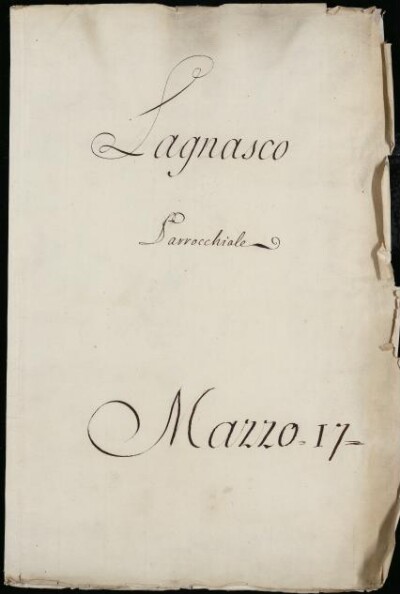 Lagnasco
Parrocchiale
Mazzo. 17